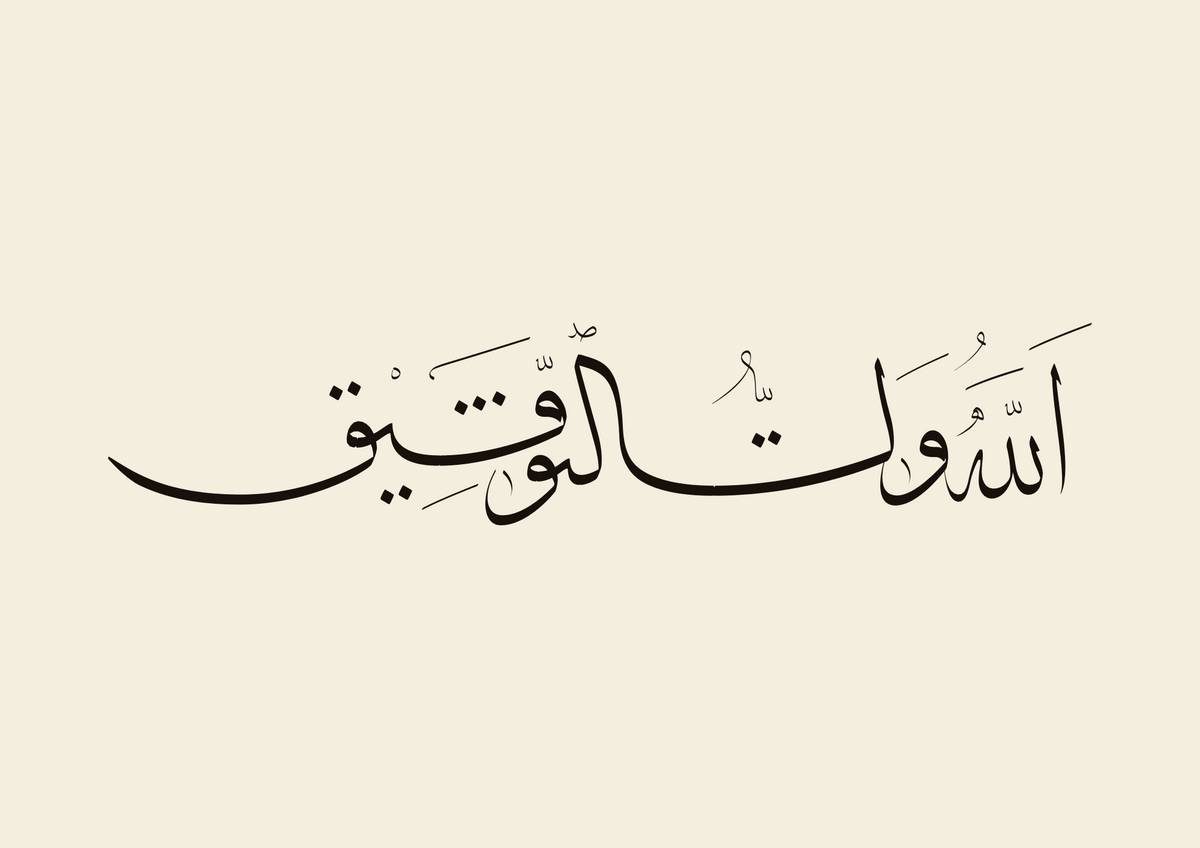 اَللّٰهُ وَلِيُّ التَّوْفِيْقِ